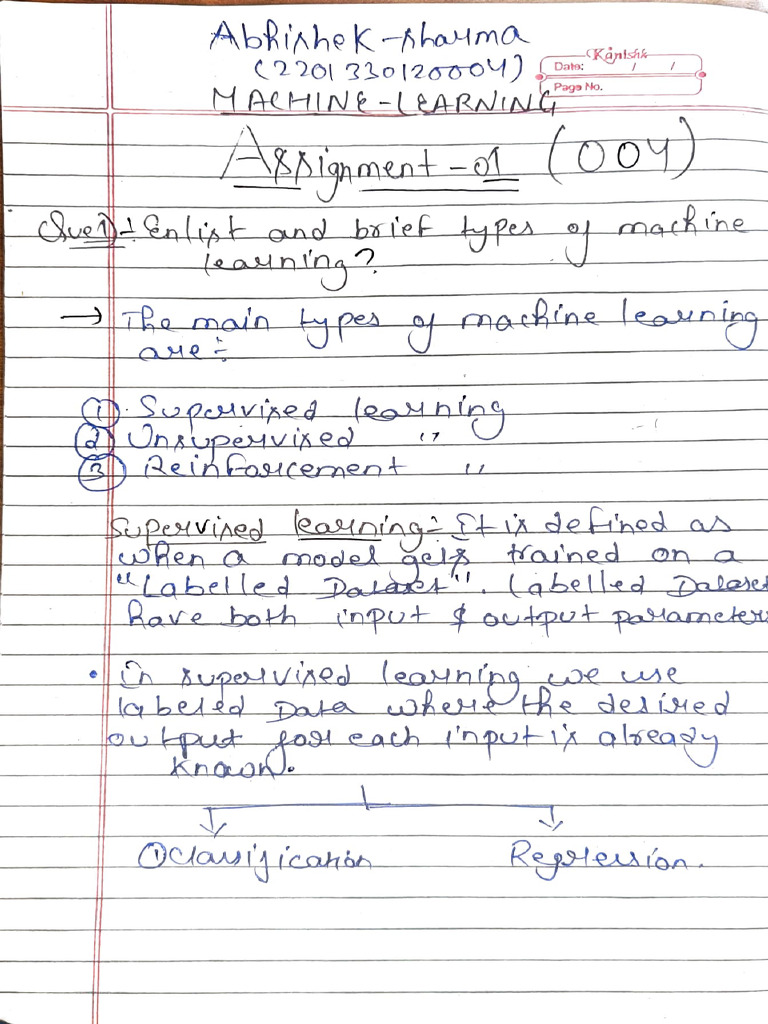 Abhishek-sharma
(2201330120004)
Kanishk
Date: / /
Page No.
MACHINE-LEARNING
Assignment-01 (004)
Que1)÷ Enlist and brief types of machine
learning?
→ The main types of machine learning
are÷
① Supervised learning
② Unsupervised "
③ Reinforcement "
Supervised learning÷ It is defined as
when a model gets trained on a
"Labelled Dataset". Labelled Dataset
have both input & output parameters
• In supervised learning we use
labeled Data where the desired
output for each input is already
known.
① Classification Regression.